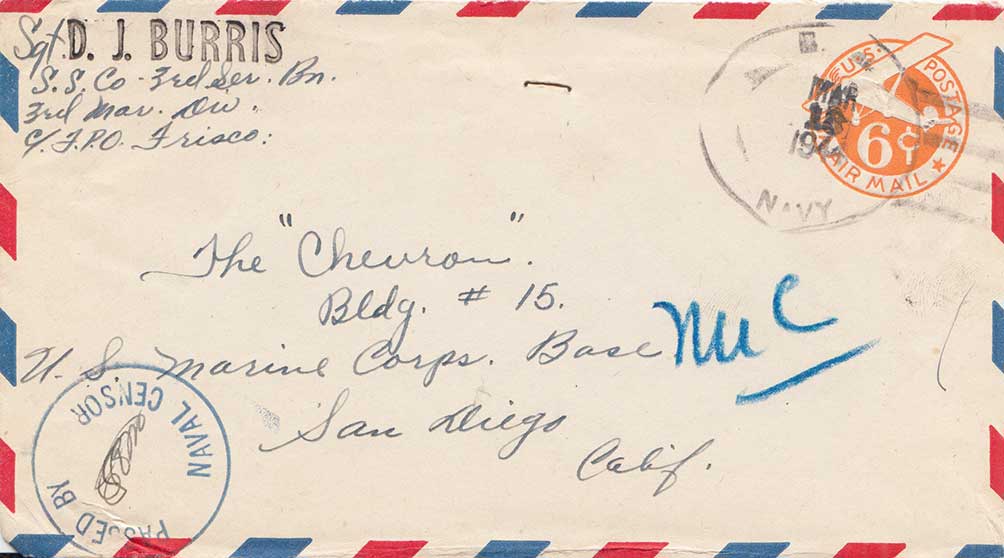 Sgt. D. J. BURRIS
S.S. Co - 3rd Ser. Bn.
3rd Mar. Div.
c/o F.P.O. Frisco:
MAR
194
NAVY
U.S. POSTAGE
6¢
AIR MAIL
The "Chevron".
Bldg. # 15.
U. S. Marine Corps. Base
San Diego
Calif.
PASSED BY
NAVAL CENSOR